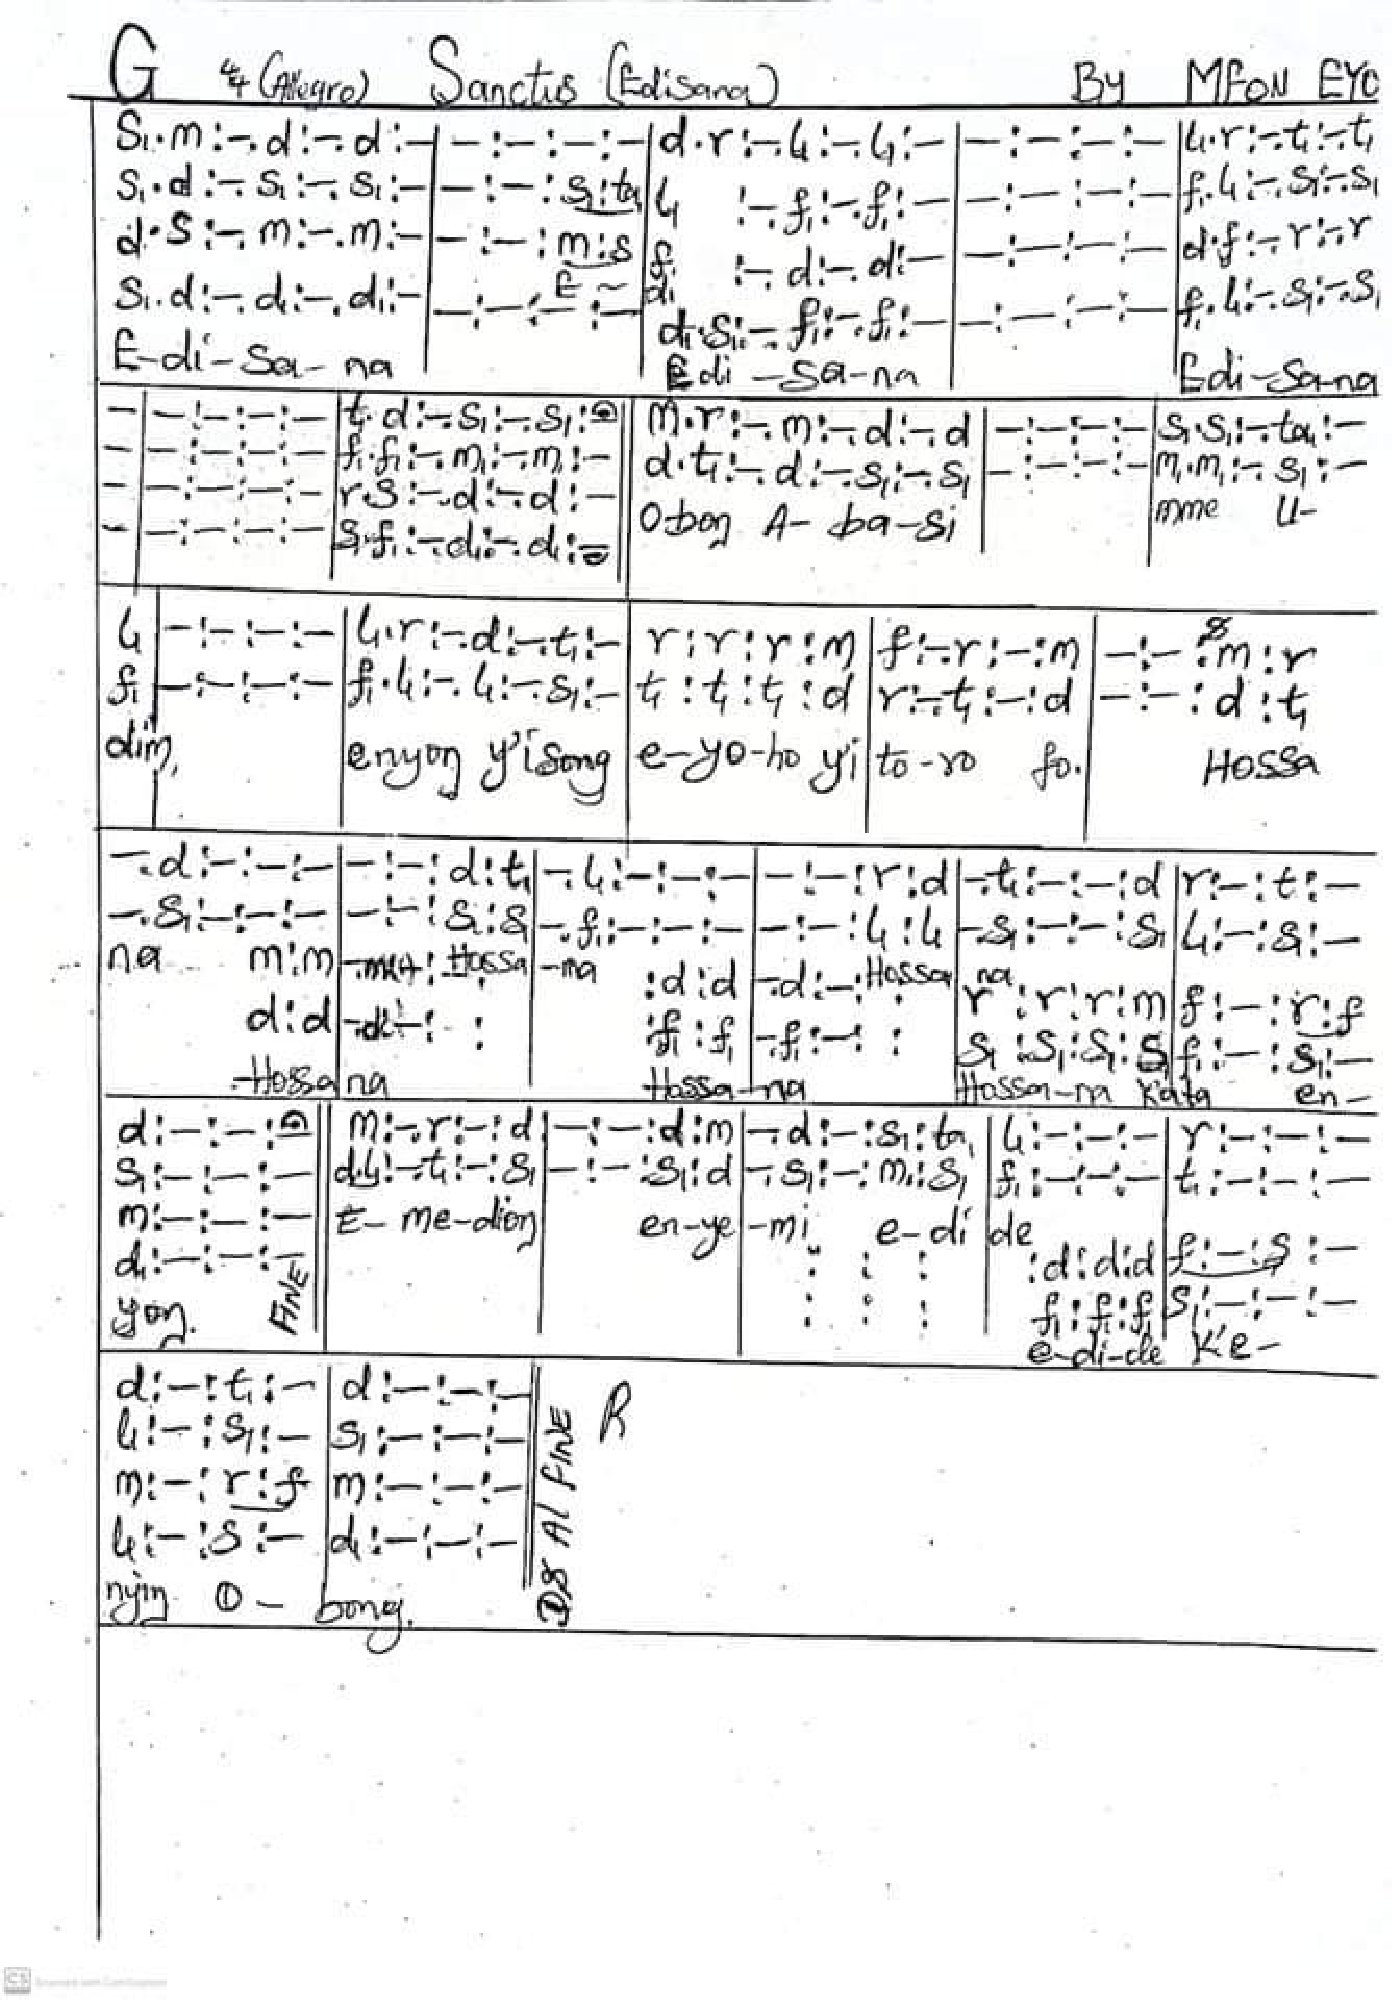 G 4/4 (Allegro) Sanctus (Edisana) By MFON EYO
S₁.m:-.d:-.d:-|-:-:-:-|d.r:-.l₁:-.l₁:-|-:-:-:-|l₁.r:-.t₁:-.t₁
S₁.d:-.s₁:-.s₁:-|-:-:s₁:ta₁|l₁ :-.f₁:-.f₁:-|-:-:-:-|f₁.l₁:-.s₁:-.s₁
d.s:-.m:-.m:-|-:-:m:s|f :-.d:-.d:-|-:-:-:-|d.f:-.r:-.r
E - di
S₁.d:-.d₁:-.d₁:-|-:-:-:-|d₁.s₁:-.f₁:-.f₁:-|-:-:-:-|f₁.l₁:-.s₁:-.s₁
E-di-Sa-na Edi-Sa-na Edi-Sa-na
-|-:-:-:-|t₁.d:-.s₁:-.s₁:-||m.r:-.m:-.d:-.d|-:-:-:-|s₁.s₁:-.ta₁:-
-|-:-:-:-|f₁.f₁:-.m₁:-.m₁:-||d.t₁:-.d:-.s₁:-.s₁|-:-:-:-|m₁.m₁:-.s₁:-
-|-:-:-:-|r.s:-.d:-.d:-
O-bong A-ba-si mme U-
-|-:-:-:-|s₁.f₁:-.d₁:-.d₁:-
l₁|-:-:-:-|l₁.r:-.d:-.t₁:-|r:r:r:m|f:-.r:-:m|-:-:m:r
f₁|-:-:-:-|f₁.l₁:-.l₁:-.s₁:-|t₁:t₁:t₁:d|r:-.t₁:-:d|-:-:d:t₁
dim, enyong y'isong e-yo-ho yi to-ro fo. Hossa
-.d:-:-:-|-:-:d:t₁|-.l₁:-:-:-|-:-:r:d|-.t₁:-:-:d|r:-:t₁:-
-.s₁:-:-:-|-:-:s₁:s₁|-.f₁:-:-:-|-:-:l₁:l₁|-.s₁:-:-:s₁|l₁:-:s₁:-
na Hossa -na Hossa na
m:m|-.m:-: :| :d:d|-.d:-: :|r:r:r:m|f:-:r:f
d:d|-.d:-: :| :f₁:f₁|-.f₁:-: :|s₁:s₁:s₁:s₁|f₁:-:s₁:-
-Hossa na Hossa-na Hossa-na Kata en-
d:-:-:-||m:-.r:-:d|-:-:d:m|-.d:-:s₁:ta₁|l₁:-:-:-|r:-:-:-
s₁:-:-:-||d.l₁:-.t₁:-:s₁|-:-:s₁:d|-.s₁:-:m₁:s₁|f₁:-:-:-|t₁:-:-:-
m:-:-:-
E-me-diong en-ye-mi e-di de
d₁:-:-:- : : : :d:d:d|f:-:s:-
: : : f₁:f₁:f₁|s₁:-:-:-
yong. FINE e-di-de K'e-
d:-:t₁:-|d:-:-:-
l₁:-:s₁:-|s₁:-:-:-
m:-:r:f|m:-:-:-
l₁:-:s:-|d₁:-:-:-
nyin O-bong.
DS Al FINE
R
CS Scanned with CamScanner